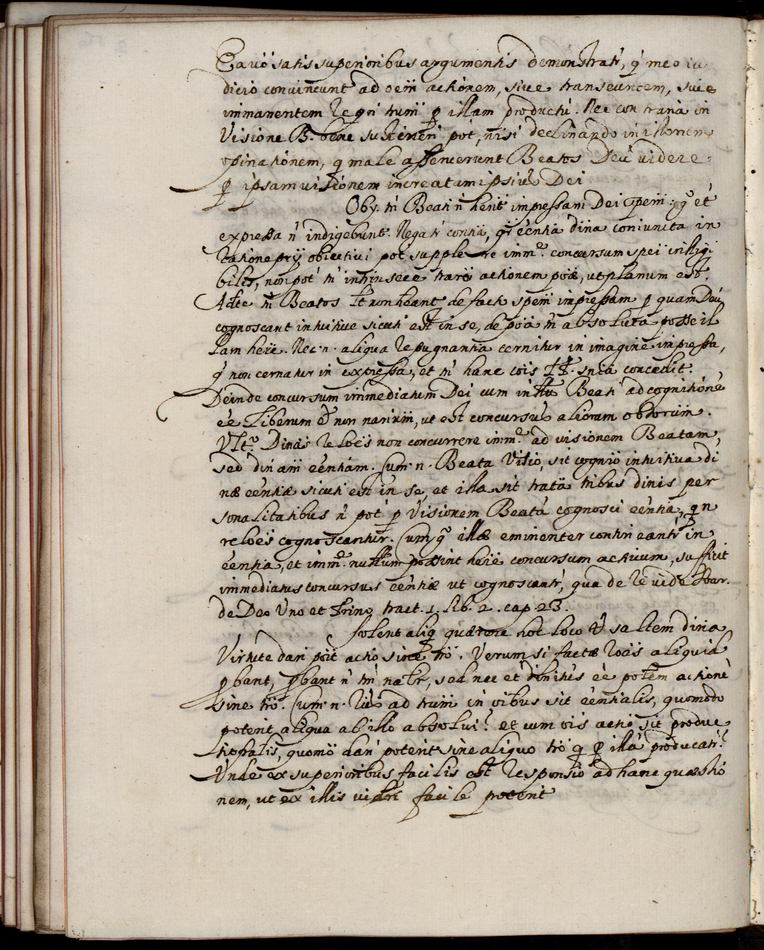 Ea vō satis superioribus argumentis demonstrati, q̄ meo iu
dicio convincunt ad oēm actionem, sive transeuntem, sive
immanentem reqri trūm p illam producti. Nec contraria in
Visione B. bene sustineri pot, nisi declinando in illorum
opinationem, q male asseruerunt Beatos Deū videre
p ipsam visionem increatam ipsius Dei
Obȷ. tn̄ Beati n̄ herit impressam Dei spēm: gº et
expressa n̄ indigebunt. Negatr conīa, q̄ eēntia dina coniuncta in
ratione prȷ obiectivi pot supplere immᵉ. concursum spēi intelligi
bilis, non pot tn̄ intrinsece rarij actionem poā, ut planum est.
Adde tn̄ Beatos lt non heant de facto spēm impressam p quam Deū
cognoscant intuitive sicuti est in se, de poā tn̄ absoluta posse il
lam here. Nec n. aliqua repugnantia cernitur in imagine impressa,
q̄ non cernatur in expressa, et tn̄ hanc cois concedit.
Deinde concursum immediatum Dei cum intellu Beati ad cognitionē
ēe liberum et non narium, ut est concursus aliorum obtorum.
Vltº. Dinas reloēs non concurrere immᵉ. ad visionem Beatam,
sed dinam eēntiam. Cum n. Beata Visio, sit cognio intuitiva di
næ eēntiæ sicuti est in se, et illa sit trata tribus dinis per
sonalitatibus n̄ pot p Visionem Beata cognosci eēntia, qn
reloēs cognoscantur. Cum gº illæ eminenter contineantr in
eēntia, et immᵉ. nullum possint here concursum activum, sufficit
immediatus concursus eēntiæ ut cognoscantr, qua de re vide Suar.
de Deo Uno et Trino tract. 1. lib. 2. cap 23.
solent aliq quærere hoc loco saltem dina
Virtute dari pōit actio sine trō. Verum si factæ roēs aliquid
pbant, pbant n̄ tm̄ natr, sed nec et dinitus ēe potēm actionē
sine trō. Cum n. ad trūm in oibus sit eēntialis, quomodo
poterit aliqua ab illo absolui? et cum ois actio sit produc
tio talis, quomō dari poterit sine aliquo trō q p illā producatr?
Unde ex superioribus facilis est responsio ad hanc quæstio
nem, ut ex illis videri facile poterit